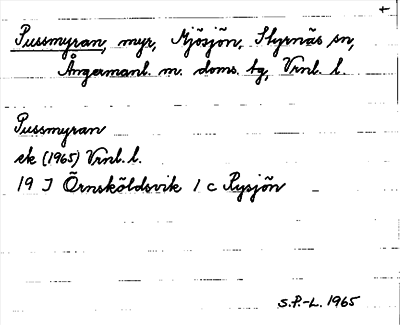 Pussmyran, myr, Mjösjön, Styrnäs sn,
Ångermanl. m. doms. tg, Vrnl. l.
Pussmyran
ek (1965) Vrnl. l.
19 J Örnsköldsvik 1 c Rysjön
S.P.-L. 1965